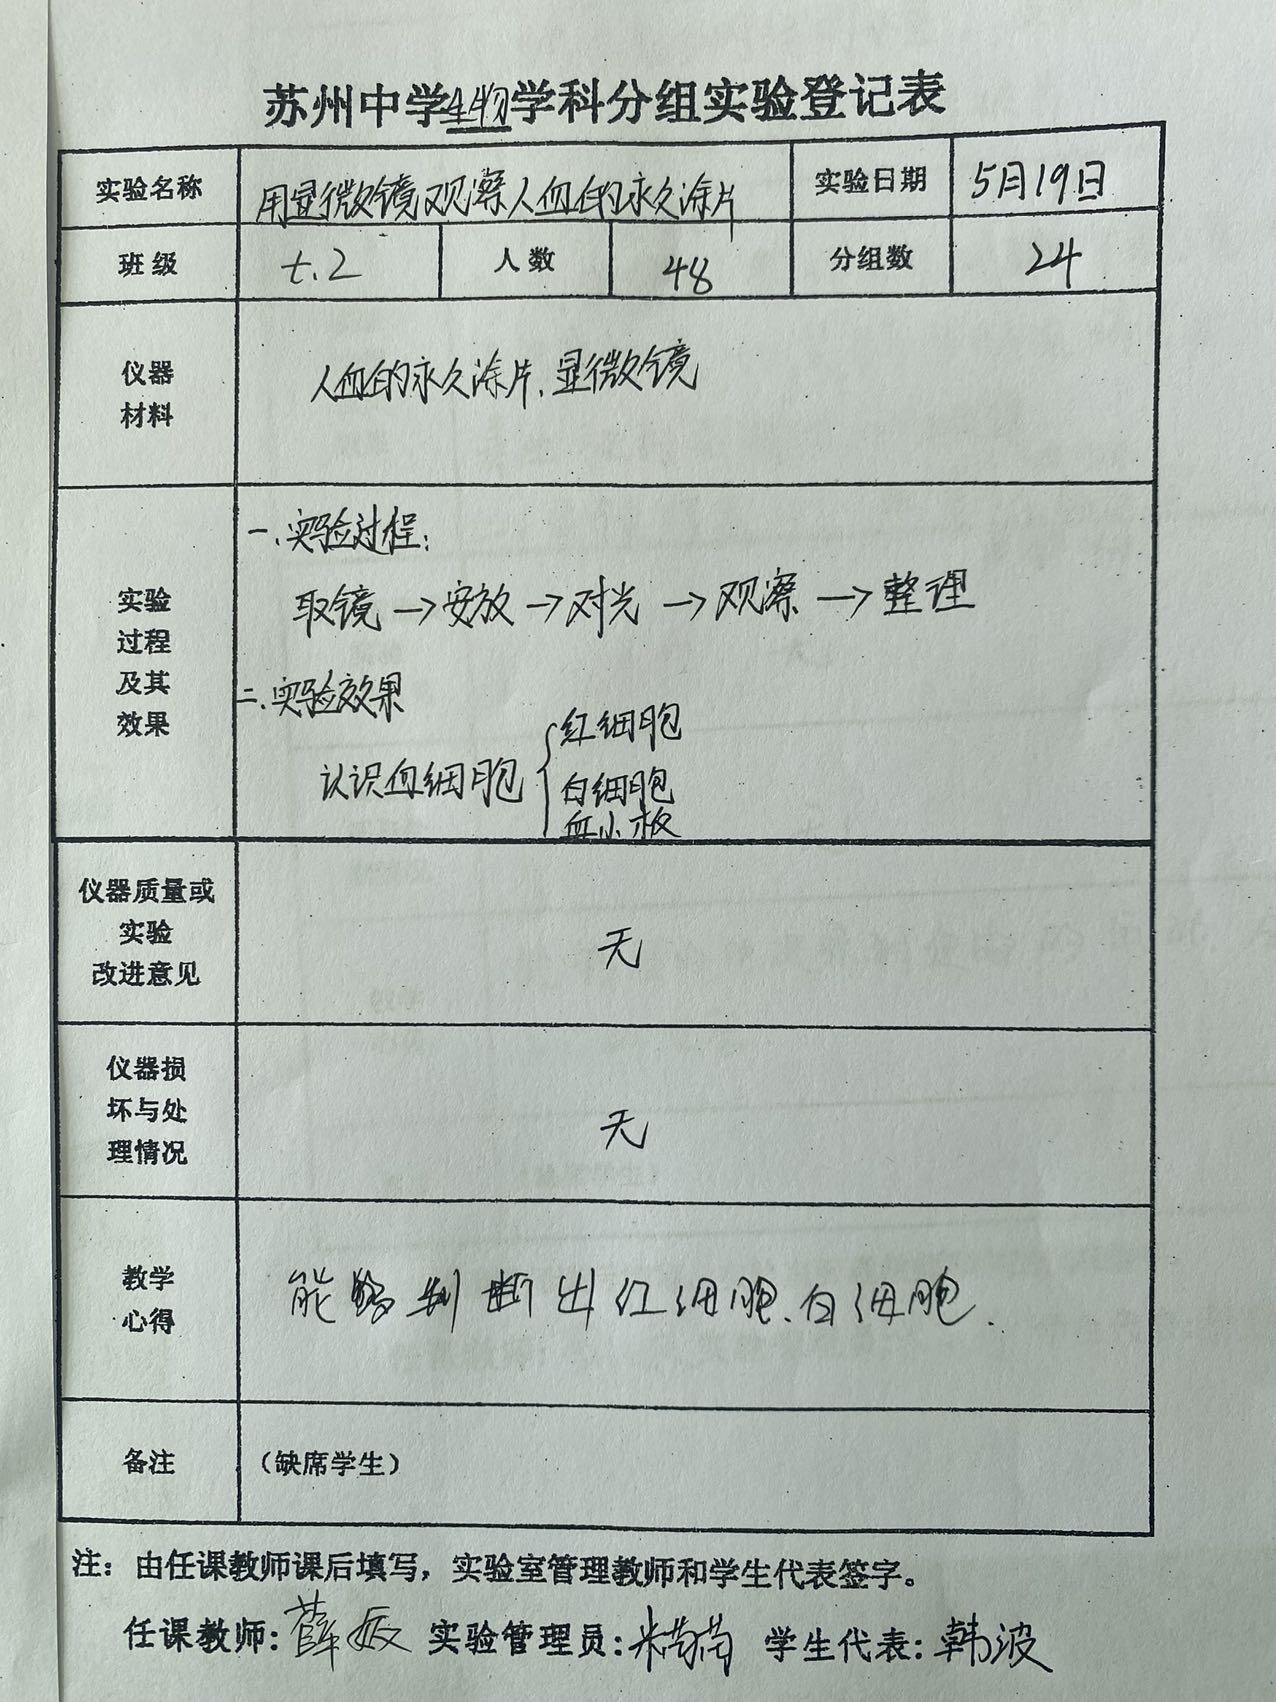 苏州中学生物学科分组实验登记表
实验名称 用显微镜观察人血的永久涂片 实验日期 5月19日
班级 七.2 人数 48 分组数 24
仪器
材料
人血的永久涂片、显微镜
实验
过程
及其
效果
一、实验过程:
取镜→安放→对光→观察→整理
二、实验效果
认识血细胞{红细胞
白细胞
血小板
仪器质量或
实验
改进意见
无
仪器损
坏与处
理情况
无
教学
心得
能够判断出红细胞、白细胞.
备注 (缺席学生)
注：由任课教师课后填写，实验室管理教师和学生代表签字。
任课教师: 薛 实验管理员: 学生代表: 韩波